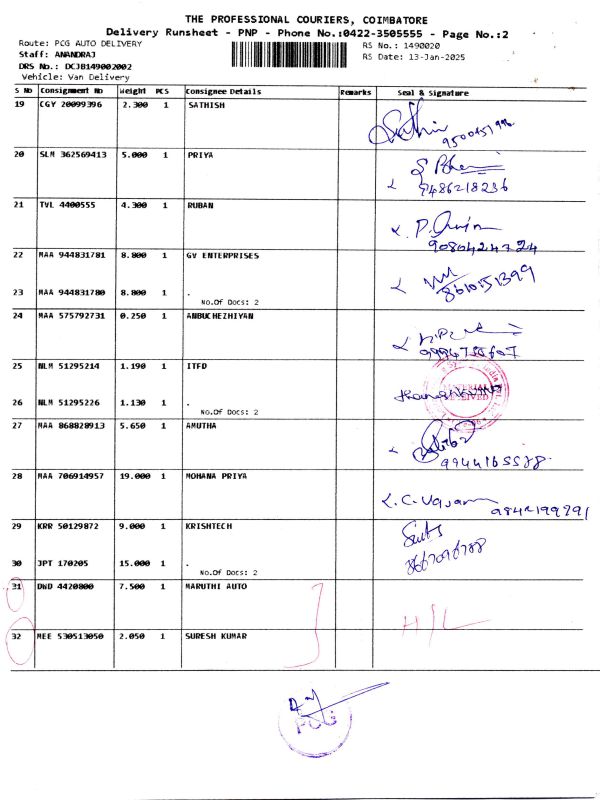 THE PROFESSIONAL COURIERS, COIMBATORE
Delivery Runsheet - PNP - Phone No.:0422-3505555 - Page No.:2
Route: PCG AUTO DELIVERY
RS No.: 1490020
Staff: ANANDRAJ
RS Date: 13-Jan-2025
DRS No.: DCJB149002002
Vehicle: Van Delivery
S No Consignment No Weight PCS Consignee Details Remarks Seal & Signature
19 CGY 20099396 2.300 1 SATHISH
20 SLM 362569413 5.000 1 PRIYA
7486218236
21 TVL 4400555 4.300 1 RUBAN
9080424724
22 MAA 944831781 8.800 1 GV ENTERPRISES
8610151399
23 MAA 944831780 8.800 1 .
No.Of Docs: 2
24 MAA 575792731 0.250 1 ANBUCHEZHIYAN
25 NLM 51295214 1.190 1 ITFD
MATERIAL
RECEIVED
26 NLM 51295226 1.130 1 .
No.Of Docs: 2
27 MAA 868828913 5.650 1 AMUTHA
9944165588
28 MAA 706914957 19.000 1 MOHANA PRIYA
9842199291
29 KRR 50129872 9.000 1 KRISHTECH
8667096788
30 JPT 170205 15.000 1 .
No.Of Docs: 2
31 DWD 4420800 7.500 1 MARUTHI AUTO
32 MEE 530513050 2.050 1 SURESH KUMAR
PCG